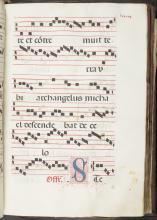 re et côtre muit te
tra
bi archangelus micha
el descende bat de ce
lo
Off. S